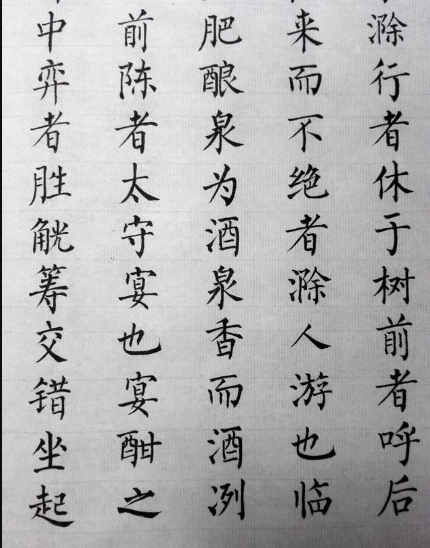 滁行者休于树前者呼后
来而不绝者滁人游也临
肥酿泉为酒泉香而酒冽
前陈者太守宴也宴酣之
中弈者胜觥筹交错坐起